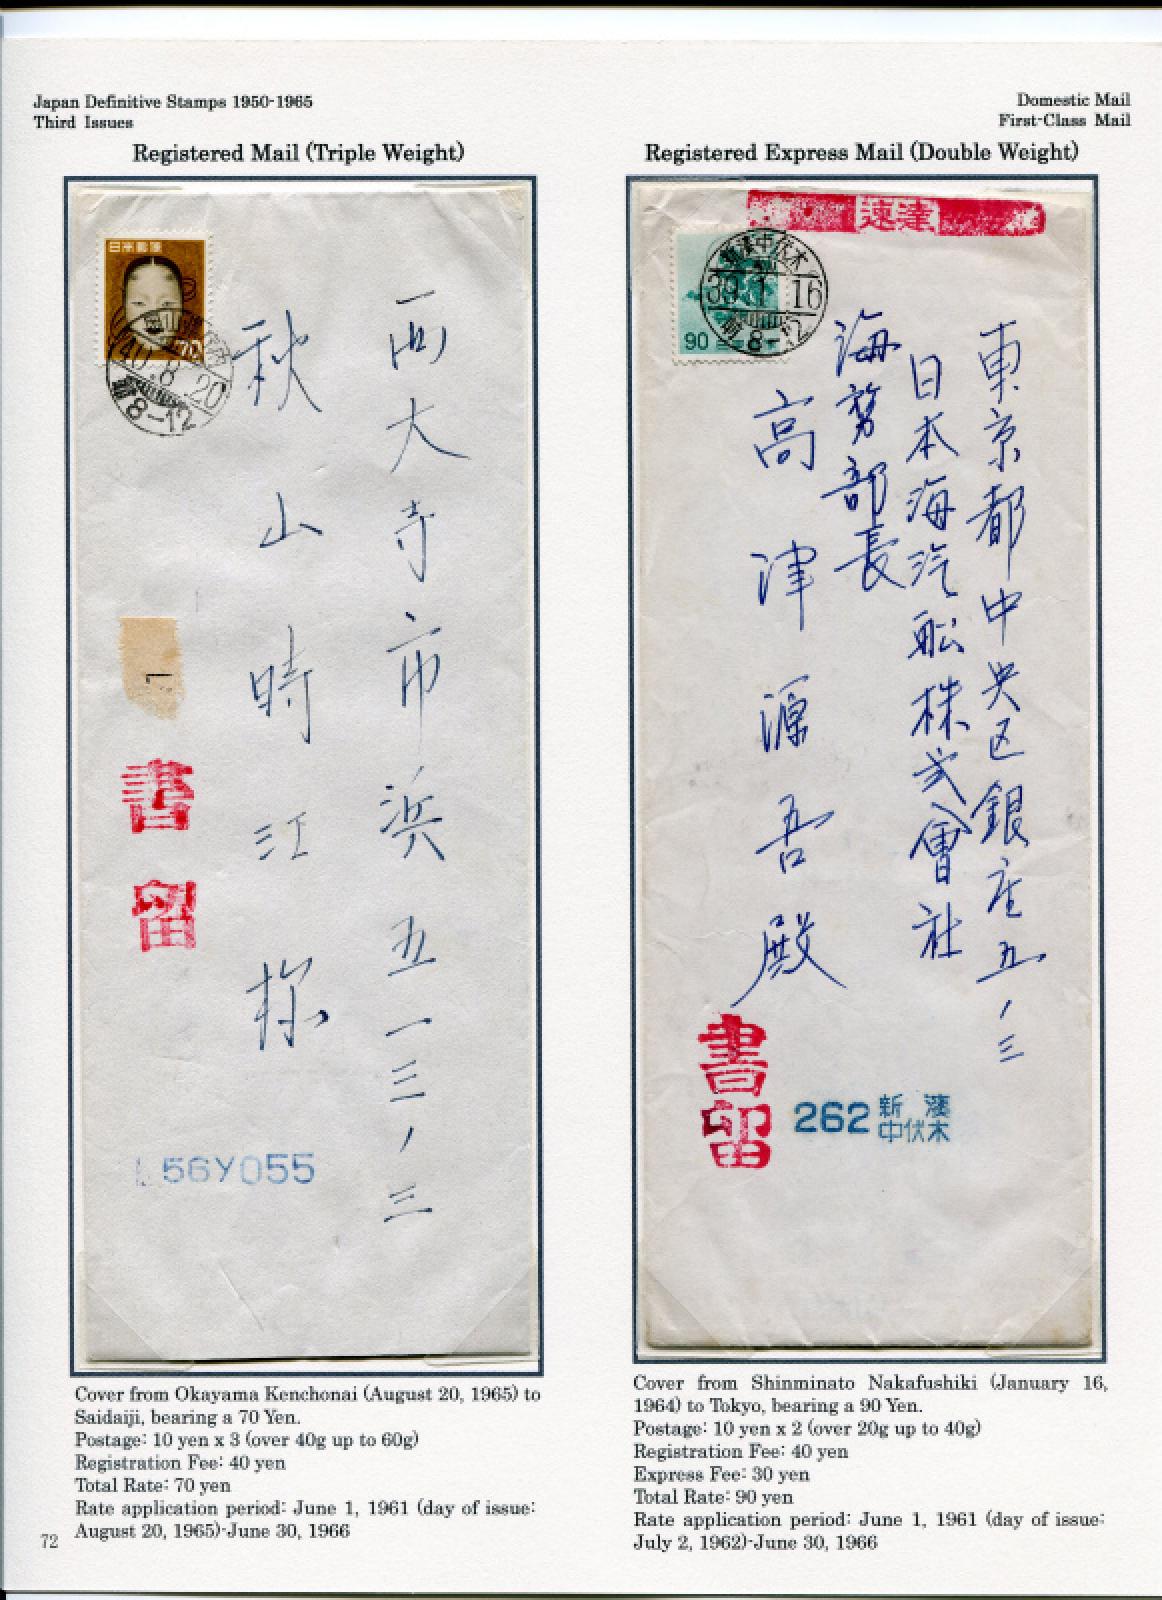 Japan Definitive Stamps 1950-1965
Third Issues
Domestic Mail
First-Class Mail
Registered Mail (Triple Weight)
日本郵便
70
40.8.20
前8-12
西大寺市浜五一三三ノ三
秋山時江様
書留
56Y055
Cover from Okayama Kenchonai (August 20, 1965) to
Saidaiji, bearing a 70 Yen.
Postage: 10 yen x 3 (over 40g up to 60g)
Registration Fee: 40 yen
Total Rate: 70 yen
Rate application period: June 1, 1961 (day of issue:
August 20, 1965)-June 30, 1966
72
Registered Express Mail (Double Weight)
速達
90
新湊中伏木
39.1.16
前8-12
東京都中央区銀座五ノ三
日本海汽船株式會社
海務部長
高津源吾殿
書留
262
新湊
中伏木
Cover from Shinminato Nakafushiki (January 16,
1964) to Tokyo, bearing a 90 Yen.
Postage: 10 yen x 2 (over 20g up to 40g)
Registration Fee: 40 yen
Express Fee: 30 yen
Total Rate: 90 yen
Rate application period: June 1, 1961 (day of issue:
July 2, 1962)-June 30, 1966